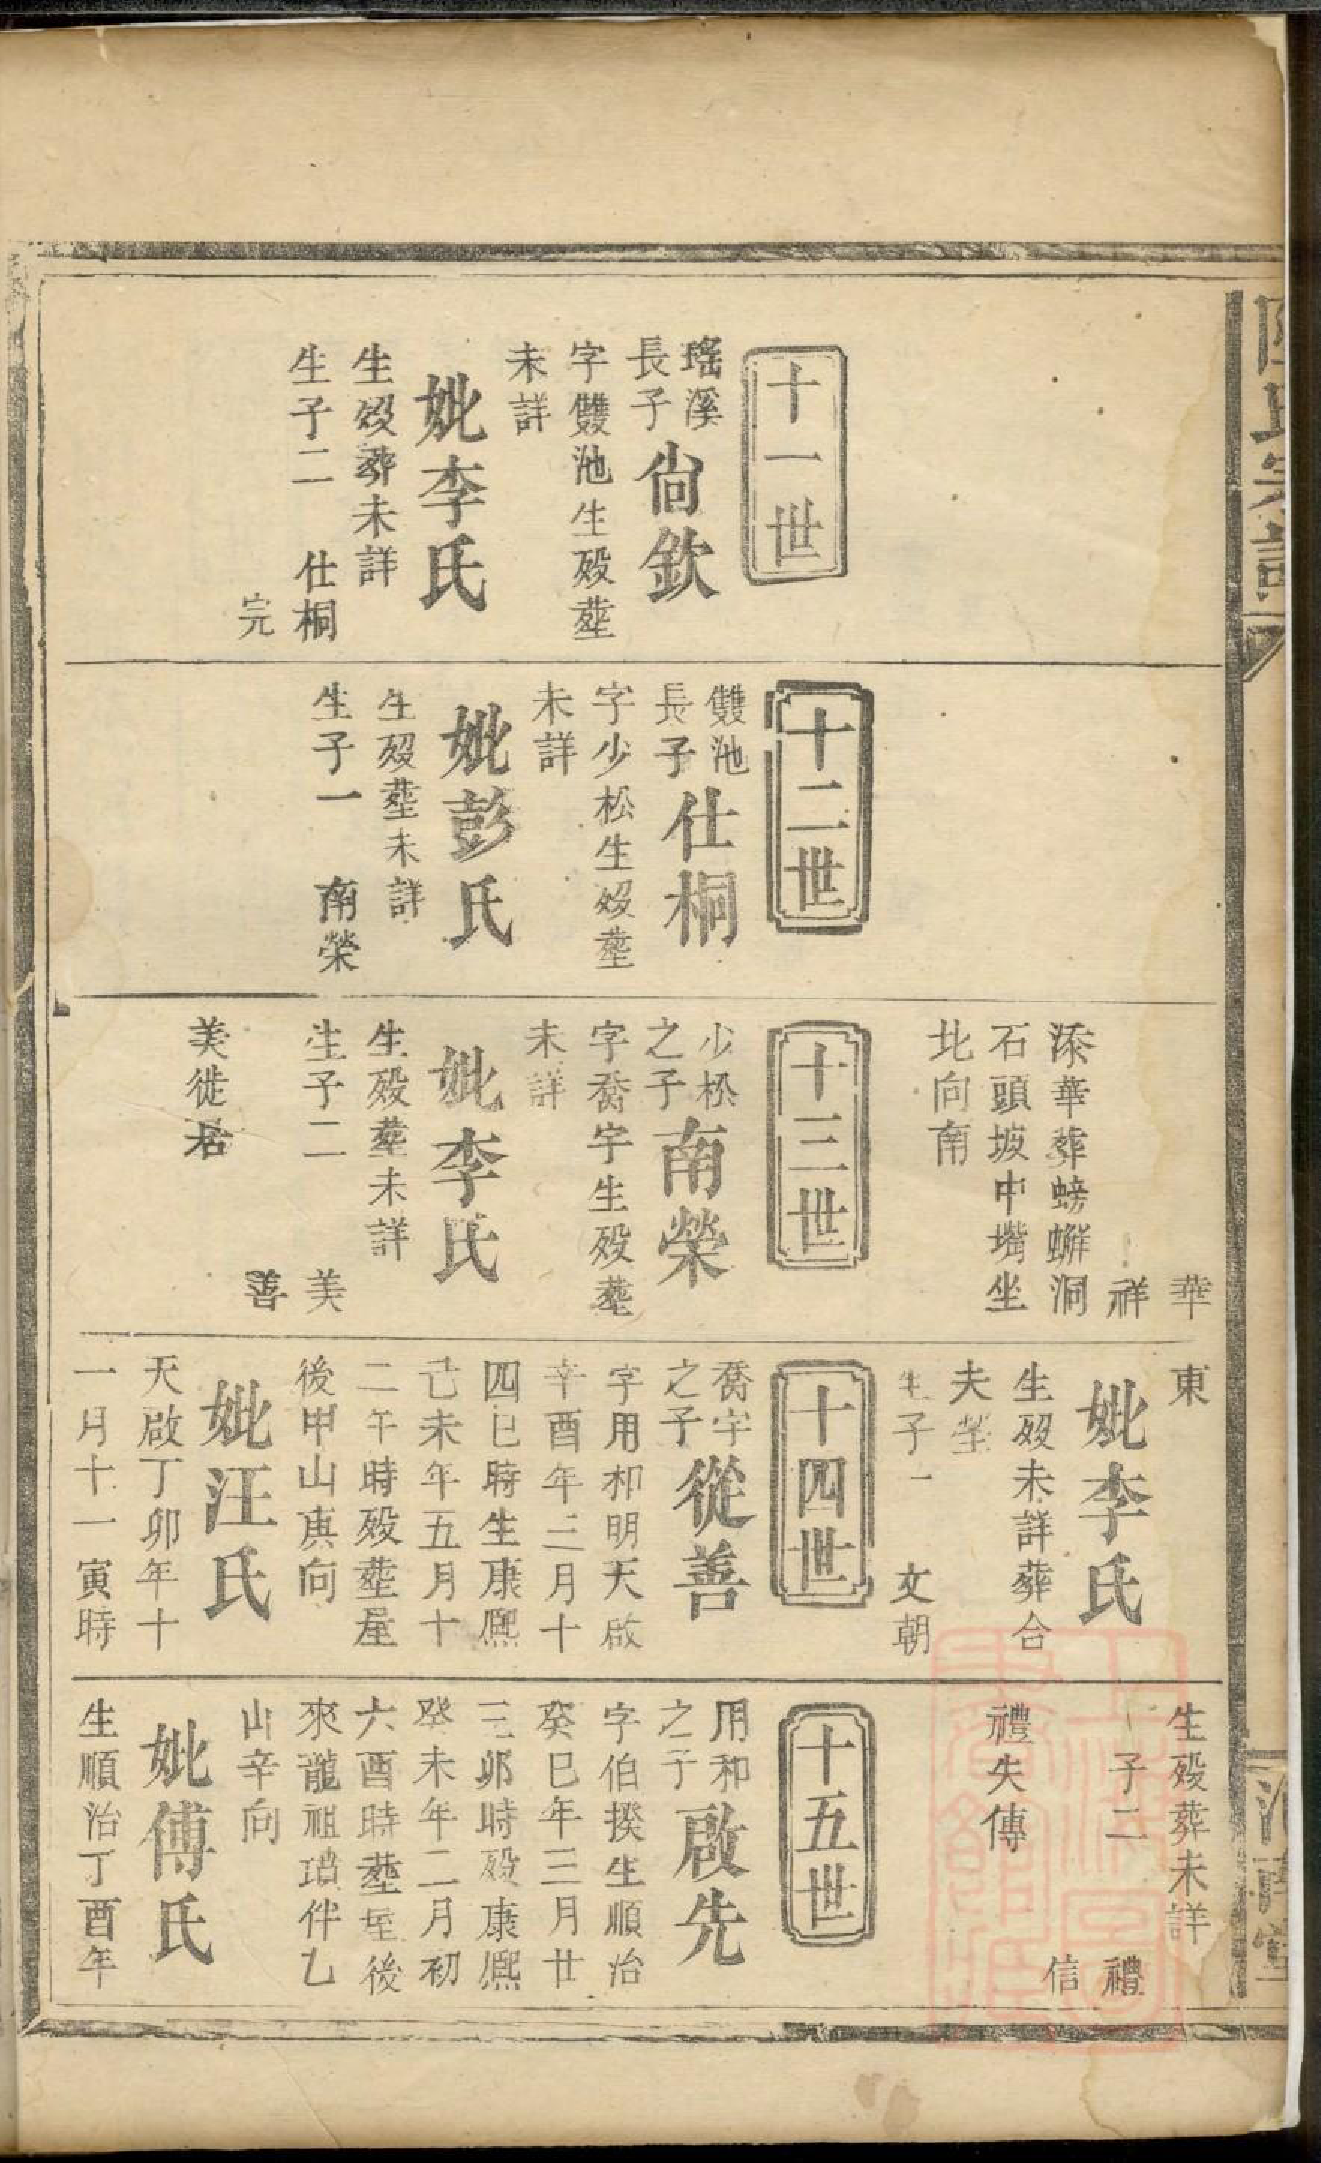 十一世
瑤溪
長子
尙欽
字雙池生歿塟
未詳
妣李氏
生歿葬未詳
生子二　仕桐
完
十二世
雙池
長子
仕桐
字少松生歿塟
未詳
妣彭氏
生歿塟未詳
生子一　南榮
華
祥
添華葬螃蠏洞
石頭坡中嘴坐
北向南
十三世
少松
之子
南榮
字喬宇生歿塟
未詳
妣李氏
生歿塟未詳
生子二　美
善
美徙居
東
妣李氏
生歿未詳葬合
夫塋
生子一　文朝
十四世
喬宇
之子
從善
字用和明天啟
辛酉年二月十
四巳時生康熈
己未年五月十
二午時歿塟屋
後甲山庚向
妣汪氏
天啟丁卯年十
一月十一寅時
生歿葬未詳
子二　禮
信
禮失傳
十五世
用和
之子
啟先
字伯揆生順治
癸巳年三月廿
三卯時歿康熈
癸未年二月初
六酉時塟屋後
來龍祖塋伴乙
山辛向
妣傅氏
生順治丁酉年